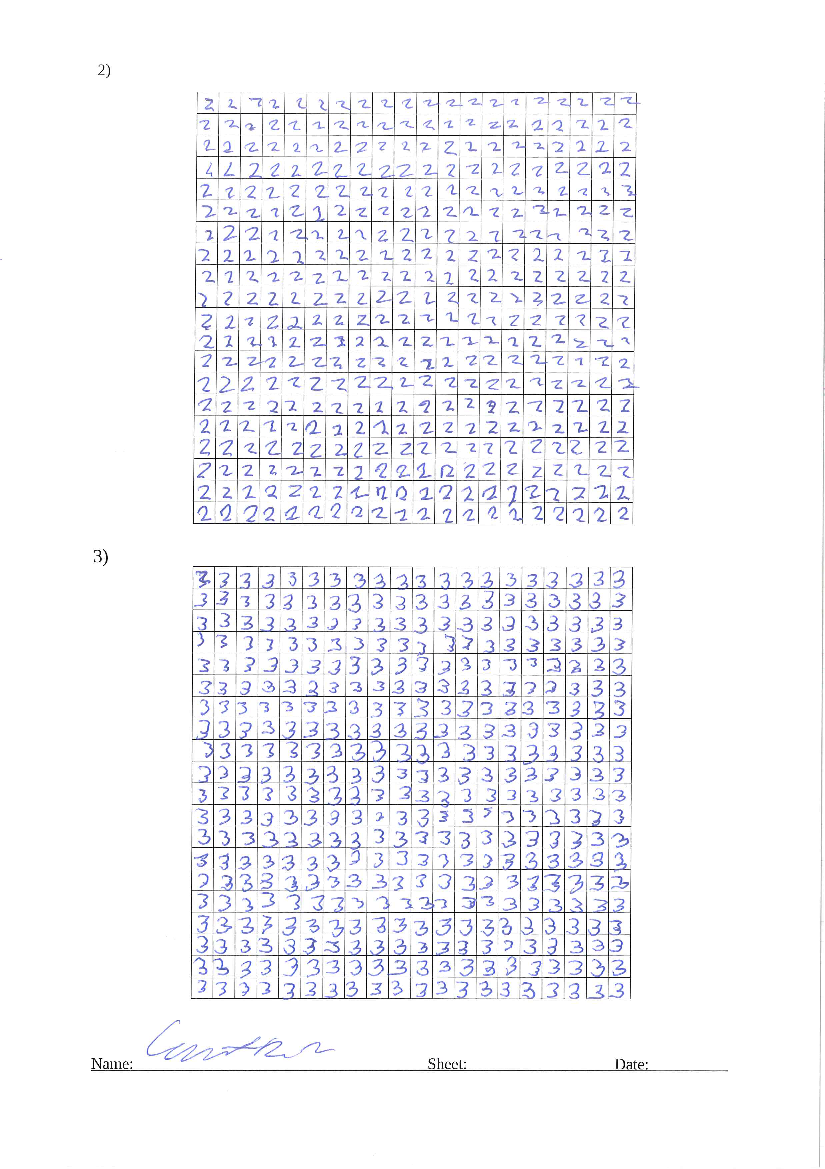 2)
2 2 2 2 2 2 2 2 2 2 2 2 2 2 2 2 2 2 2 2
2 2 2 2 2 2 2 2 2 2 2 2 2 2 2 2 2 2 2 2
2 2 2 2 2 2 2 2 2 2 2 2 2 2 2 2 2 2 2 2
2 2 2 2 2 2 2 2 2 2 2 2 2 2 2 2 2 2 2 2
2 2 2 2 2 2 2 2 2 2 2 2 2 2 2 2 2 2 2 2
2 2 2 2 2 2 2 2 2 2 2 2 2 2 2 2 2 2 2 2
2 2 2 2 2 2 2 2 2 2 2 2 2 2 2 2 2 2 2 2
2 2 2 2 2 2 2 2 2 2 2 2 2 2 2 2 2 2 2 2
2 2 2 2 2 2 2 2 2 2 2 2 2 2 2 2 2 2 2 2
2 2 2 2 2 2 2 2 2 2 2 2 2 2 2 2 2 2 2 2
2 2 2 2 2 2 2 2 2 2 2 2 2 2 2 2 2 2 2 2
2 2 2 2 2 2 2 2 2 2 2 2 2 2 2 2 2 2 2 2
2 2 2 2 2 2 2 2 2 2 2 2 2 2 2 2 2 2 2 2
2 2 2 2 2 2 2 2 2 2 2 2 2 2 2 2 2 2 2 2
2 2 2 2 2 2 2 2 2 2 2 2 2 2 2 2 2 2 2 2
2 2 2 2 2 2 2 2 2 2 2 2 2 2 2 2 2 2 2 2
2 2 2 2 2 2 2 2 2 2 2 2 2 2 2 2 2 2 2 2
2 2 2 2 2 2 2 2 2 2 2 2 2 2 2 2 2 2 2 2
2 2 2 2 2 2 2 2 2 2 2 2 2 2 2 2 2 2 2 2
2 2 2 2 2 2 2 2 2 2 2 2 2 2 2 2 2 2 2 2
3)
3 3 3 3 3 3 3 3 3 3 3 3 3 3 3 3 3 3 3 3
3 3 3 3 3 3 3 3 3 3 3 3 3 3 3 3 3 3 3 3
3 3 3 3 3 3 3 3 3 3 3 3 3 3 3 3 3 3 3 3
3 3 3 3 3 3 3 3 3 3 3 3 3 3 3 3 3 3 3 3
3 3 3 3 3 3 3 3 3 3 3 3 3 3 3 3 3 3 3 3
3 3 3 3 3 3 3 3 3 3 3 3 3 3 3 3 3 3 3 3
3 3 3 3 3 3 3 3 3 3 3 3 3 3 3 3 3 3 3 3
3 3 3 3 3 3 3 3 3 3 3 3 3 3 3 3 3 3 3 3
3 3 3 3 3 3 3 3 3 3 3 3 3 3 3 3 3 3 3 3
3 3 3 3 3 3 3 3 3 3 3 3 3 3 3 3 3 3 3 3
3 3 3 3 3 3 3 3 3 3 3 3 3 3 3 3 3 3 3 3
3 3 3 3 3 3 3 3 3 3 3 3 3 3 3 3 3 3 3 3
3 3 3 3 3 3 3 3 3 3 3 3 3 3 3 3 3 3 3 3
3 3 3 3 3 3 3 3 3 3 3 3 3 3 3 3 3 3 3 3
3 3 3 3 3 3 3 3 3 3 3 3 3 3 3 3 3 3 3 3
3 3 3 3 3 3 3 3 3 3 3 3 3 3 3 3 3 3 3 3
3 3 3 3 3 3 3 3 3 3 3 3 3 3 3 3 3 3 3 3
3 3 3 3 3 3 3 3 3 3 3 3 3 3 3 3 3 3 3 3
3 3 3 3 3 3 3 3 3 3 3 3 3 3 3 3 3 3 3 3
3 3 3 3 3 3 3 3 3 3 3 3 3 3 3 3 3 3 3 3
Name: Sheet: Date: